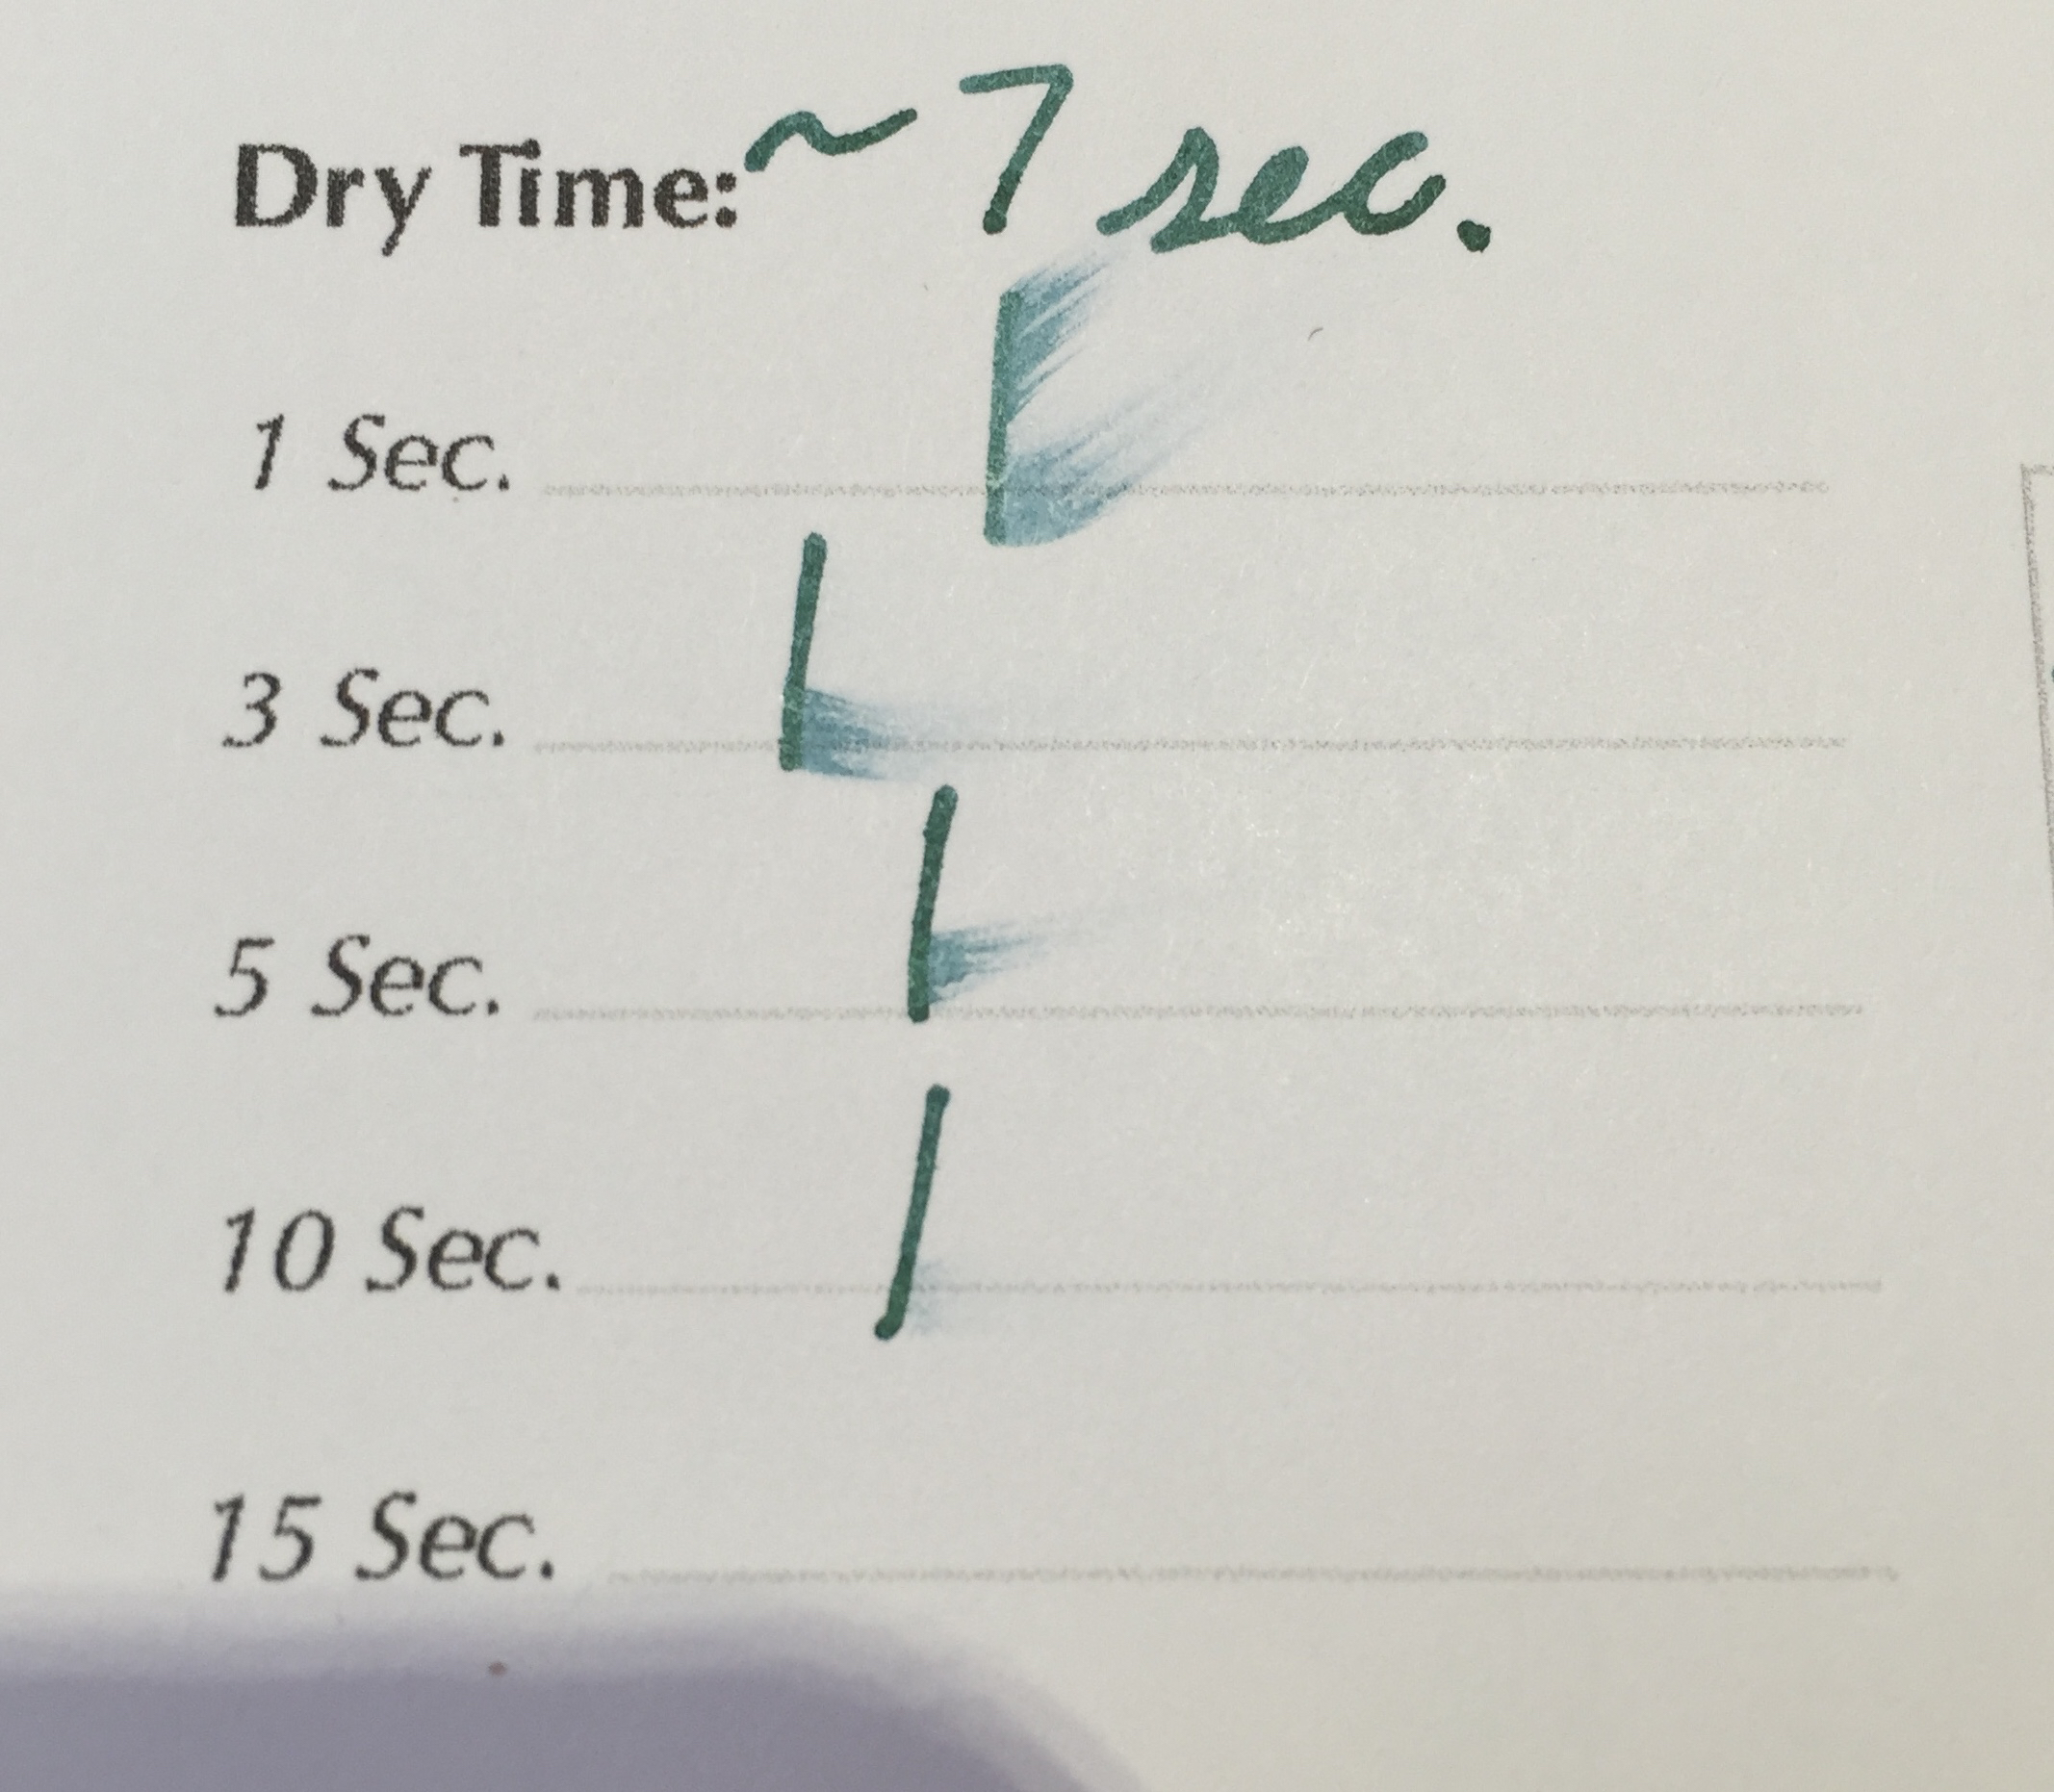 Dry Time: ~ 7 sec.
1 Sec.
3 Sec.
5 Sec.
10 Sec.
15 Sec.